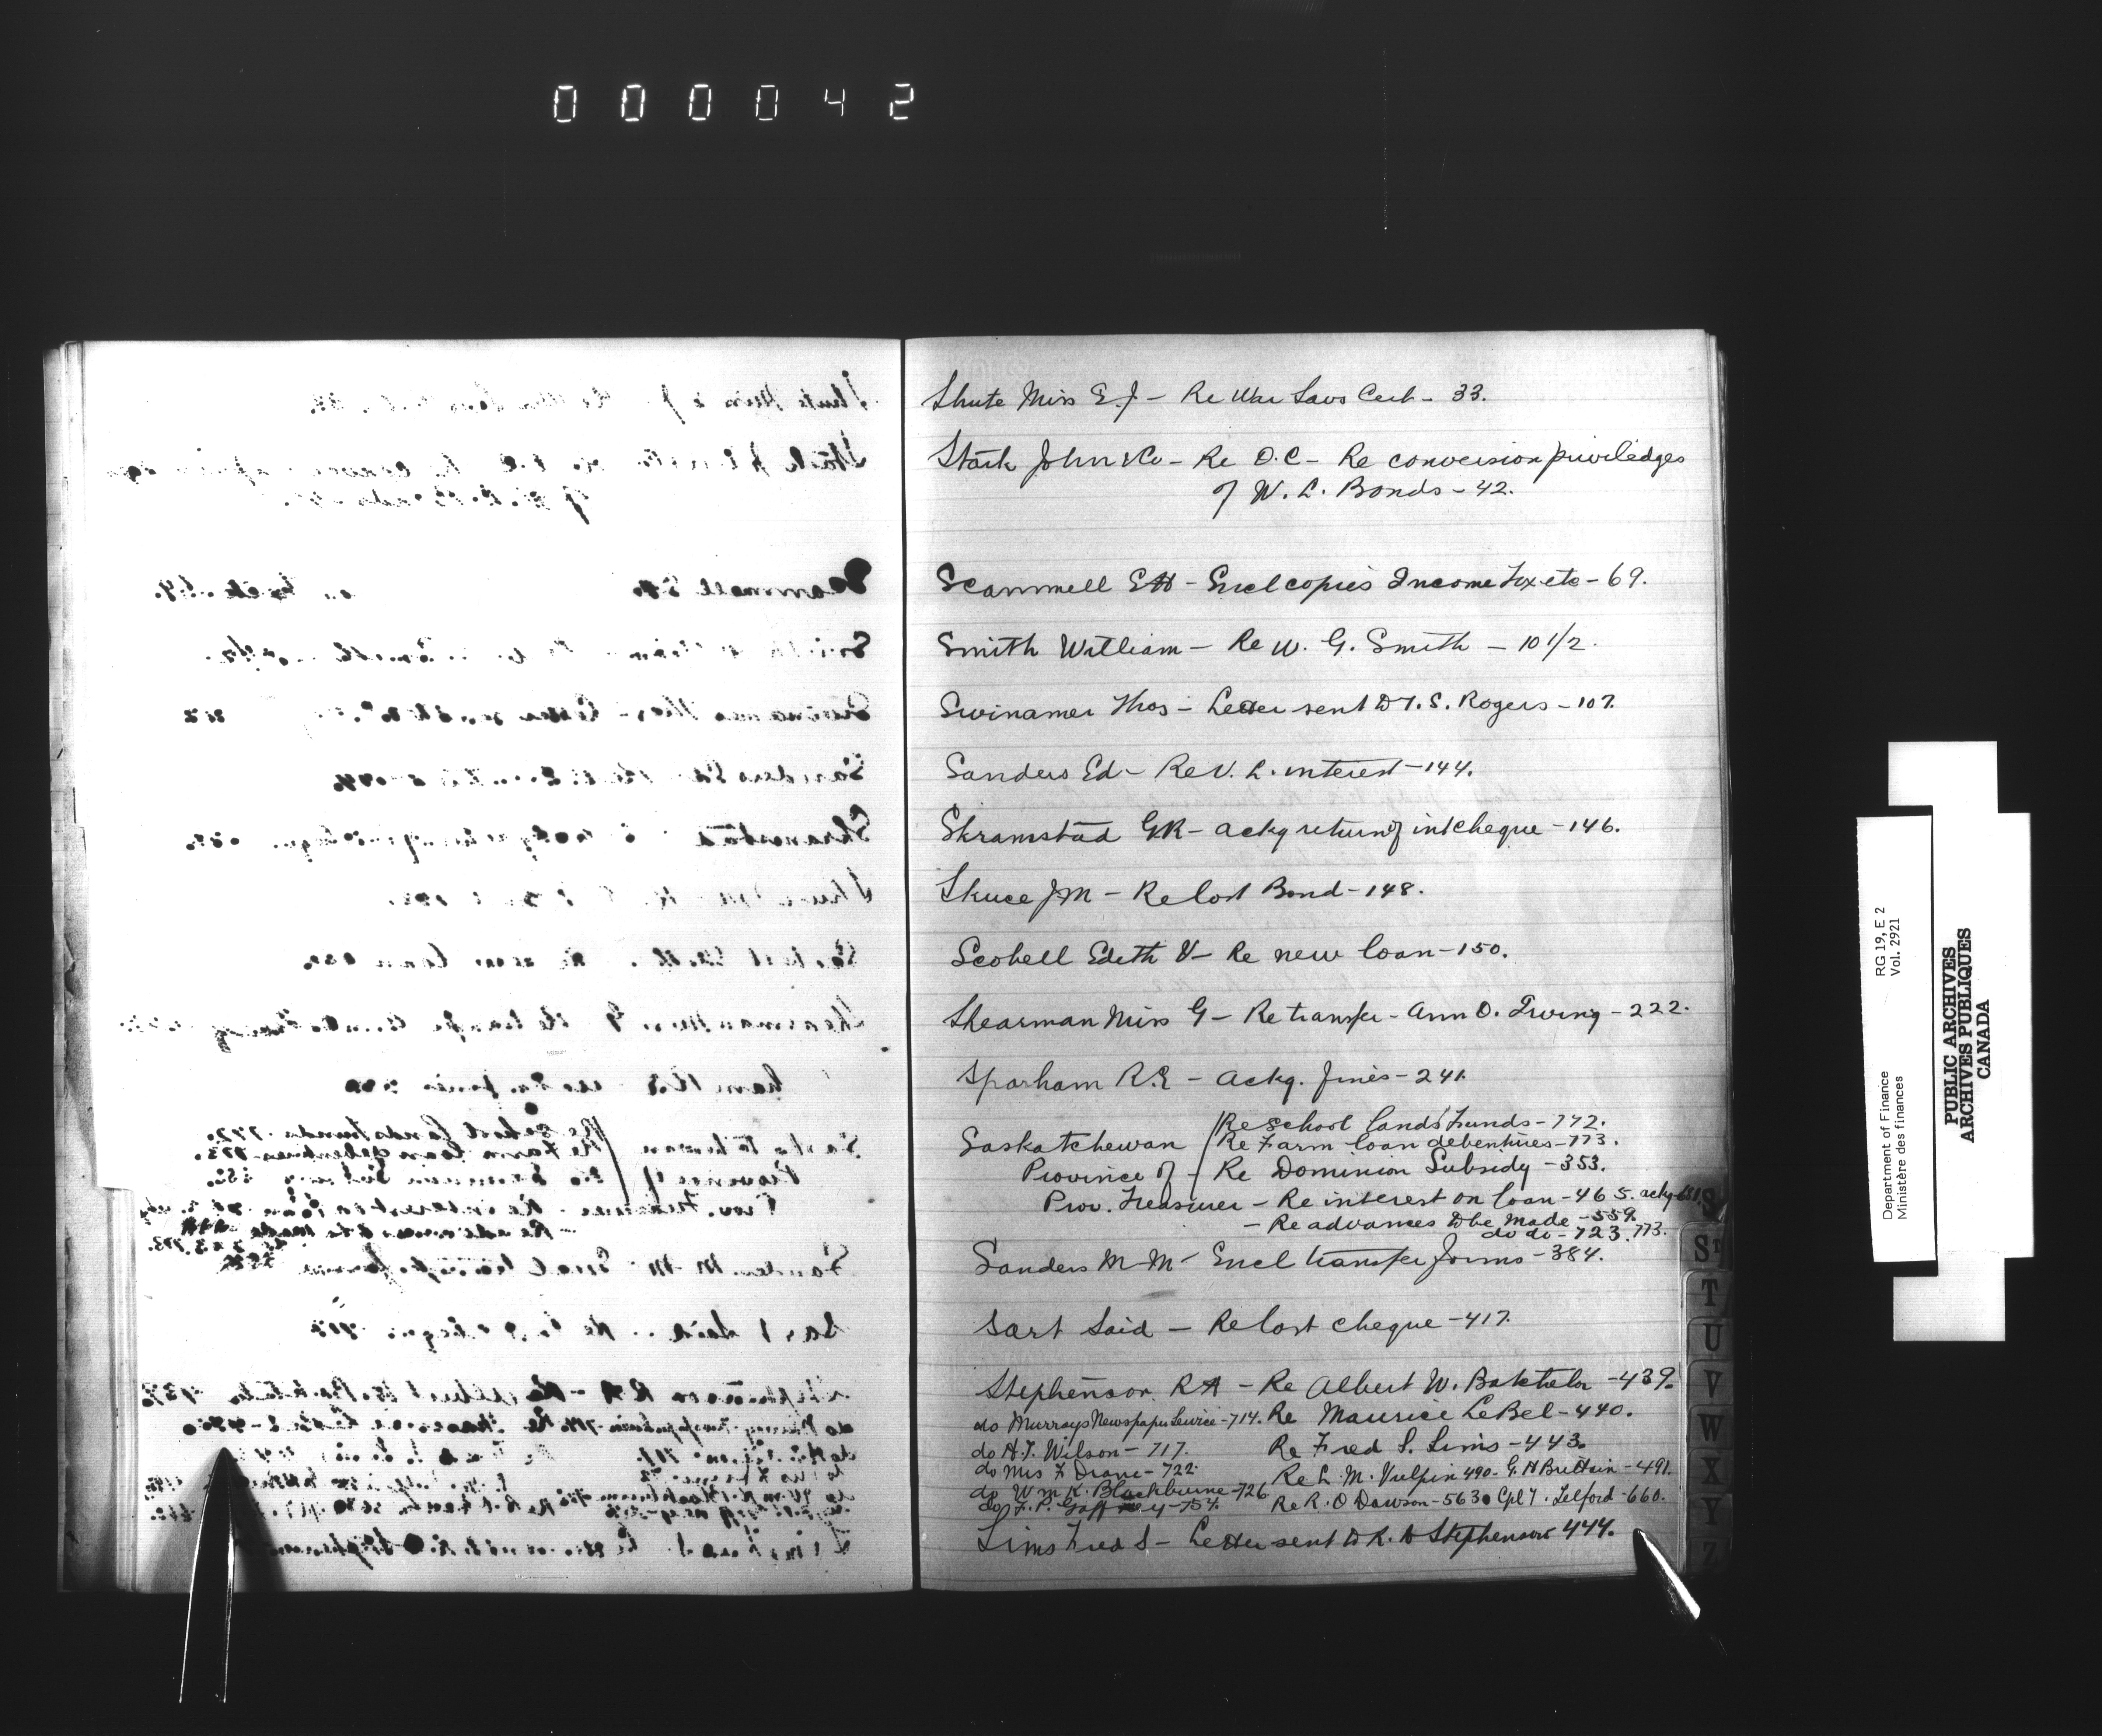 000042
Shute Miss E. J - Re War Savs Cert - 33.
Stark John & Co - Re O.C - Re conversion priviledges
of W. L. Bonds - 42.
Scammell E H - Encl copies Income Tax etc - 69.
Smith William - Re W. G. Smith - 101/2.
Swinamer Thos - Letter sent to T. S. Rogers - 107.
Sanders Ed - Re V. L. interest - 144.
Skramstad G R - ackg return of int cheque - 146.
Skuce J. M - Re lost Bond - 148.
Scobell Edith V - Re new loan - 150.
Shearman Miss G - Re transfer - Ann O. Irving - 222.
Sparham R. E - ackg. fines - 241.
Re school lands Funds - 772.
Saskatchewan Re Farm loan debentures - 773.
Province of - Re Dominion Subsidy - 353.
Prov. Treasurer - Re interest on loan - 465. ackg - 651.
- Re advances to be made - 559.
do do - 723. 773.
Sanders M M - Encl transfer forms - 384.
Sart Said - Re lost cheque - 417.
Stephenson R A - Re Albert W. Batchelor - 439.
do Murrays Newspaper Service - 714. Re Maurice LeBel - 440.
do H. T. Wilson - 717. Re Fred S. Sims - 443.
do Mrs F Drane - 722. Re L. M. Vulpin 490 - G. H Brittain - 491.
do Wm K. Blackburne - 726
do F. P. Gaffney - 754. Re R. O Dawson - 563. Cpl T. Telford - 660.
Sims Fred S - Letter sent to R. A Stephenson 444.
S
St
T
U
V
W
X
Y
Z
Department of Finance RG 19, E 2
Ministère des finances Vol. 2921
PUBLIC ARCHIVES
ARCHIVES PUBLIQUES
CANADA